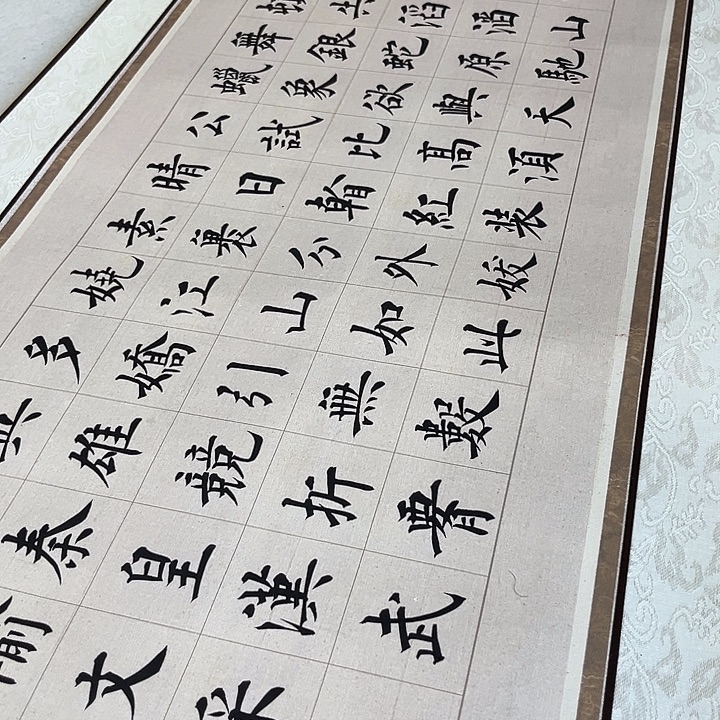 滔滔山
舞銀蛇原馳
蠟象欲與天
公試比高須
晴日看紅裝
素裹分外妖
嬈江山如此
多嬌引無數
英雄競折腰
秦皇漢武
輸文采